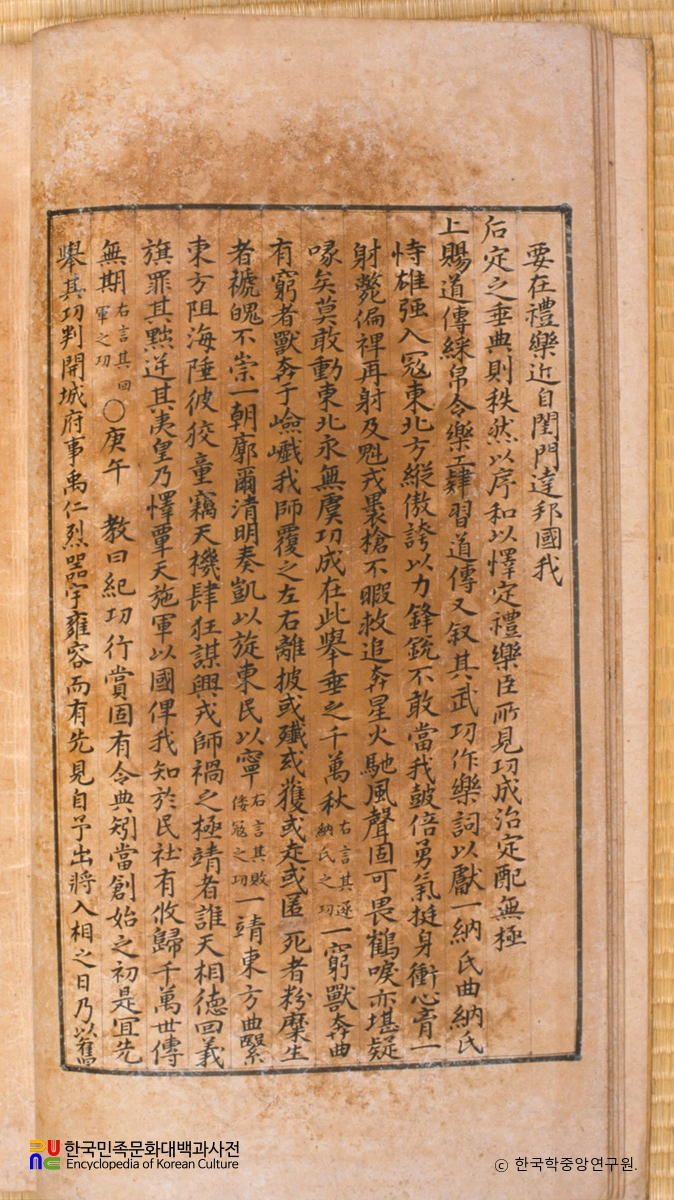 要在禮樂近自閨門達邦國我
后定之垂典則秩然以序和以懌定禮樂臣所見功成治定配無極
上賜道傳綵帛令樂工肄習道傳又叙其武功作樂詞以獻一納氏曲納氏
恃雄强入冦東北方縱傲誇以力鋒銳不敢當我鼓倍勇氣挺身衝心膏一
射斃偏裨再射及魁戎褁槍不暇救追奔星火馳風聲固可畏鶴唳亦堪疑
喙矣莫敢動東北永無虞功成在此擧垂之千萬秋右言其逐納氏之功一窮獸奔曲
有窮者獸奔于嶮巇我師覆之左右離披或殲或獲或走或匿死者粉糜生
者褫魄不崇一朝廓爾清明奏凱以旋東民以寧右言其敗倭冦之功一靖東方曲繄
東方阻海陲彼狡童竊天機肆狂謀興戎師禍之極靖者誰天相德回義
旗罪其黜逆其夷皇乃懌覃天施軍以國俾我知於民社有攸歸千萬世傳
無期右言其回軍之功〇庚午 教曰紀功行賞固有令典矧當創始之初是宜先
擧其功判開城府事禹仁烈器宇雍容而有先見自予出將入相之日乃以舊
한국민족문화대백과사전
Encyclopedia of Korean Culture
ⓒ 한국학중앙연구원.